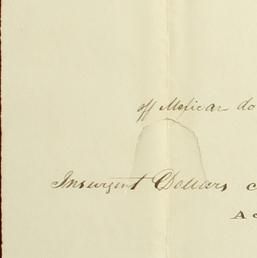 off Mexican do
Insurgent Dollars c
Ac